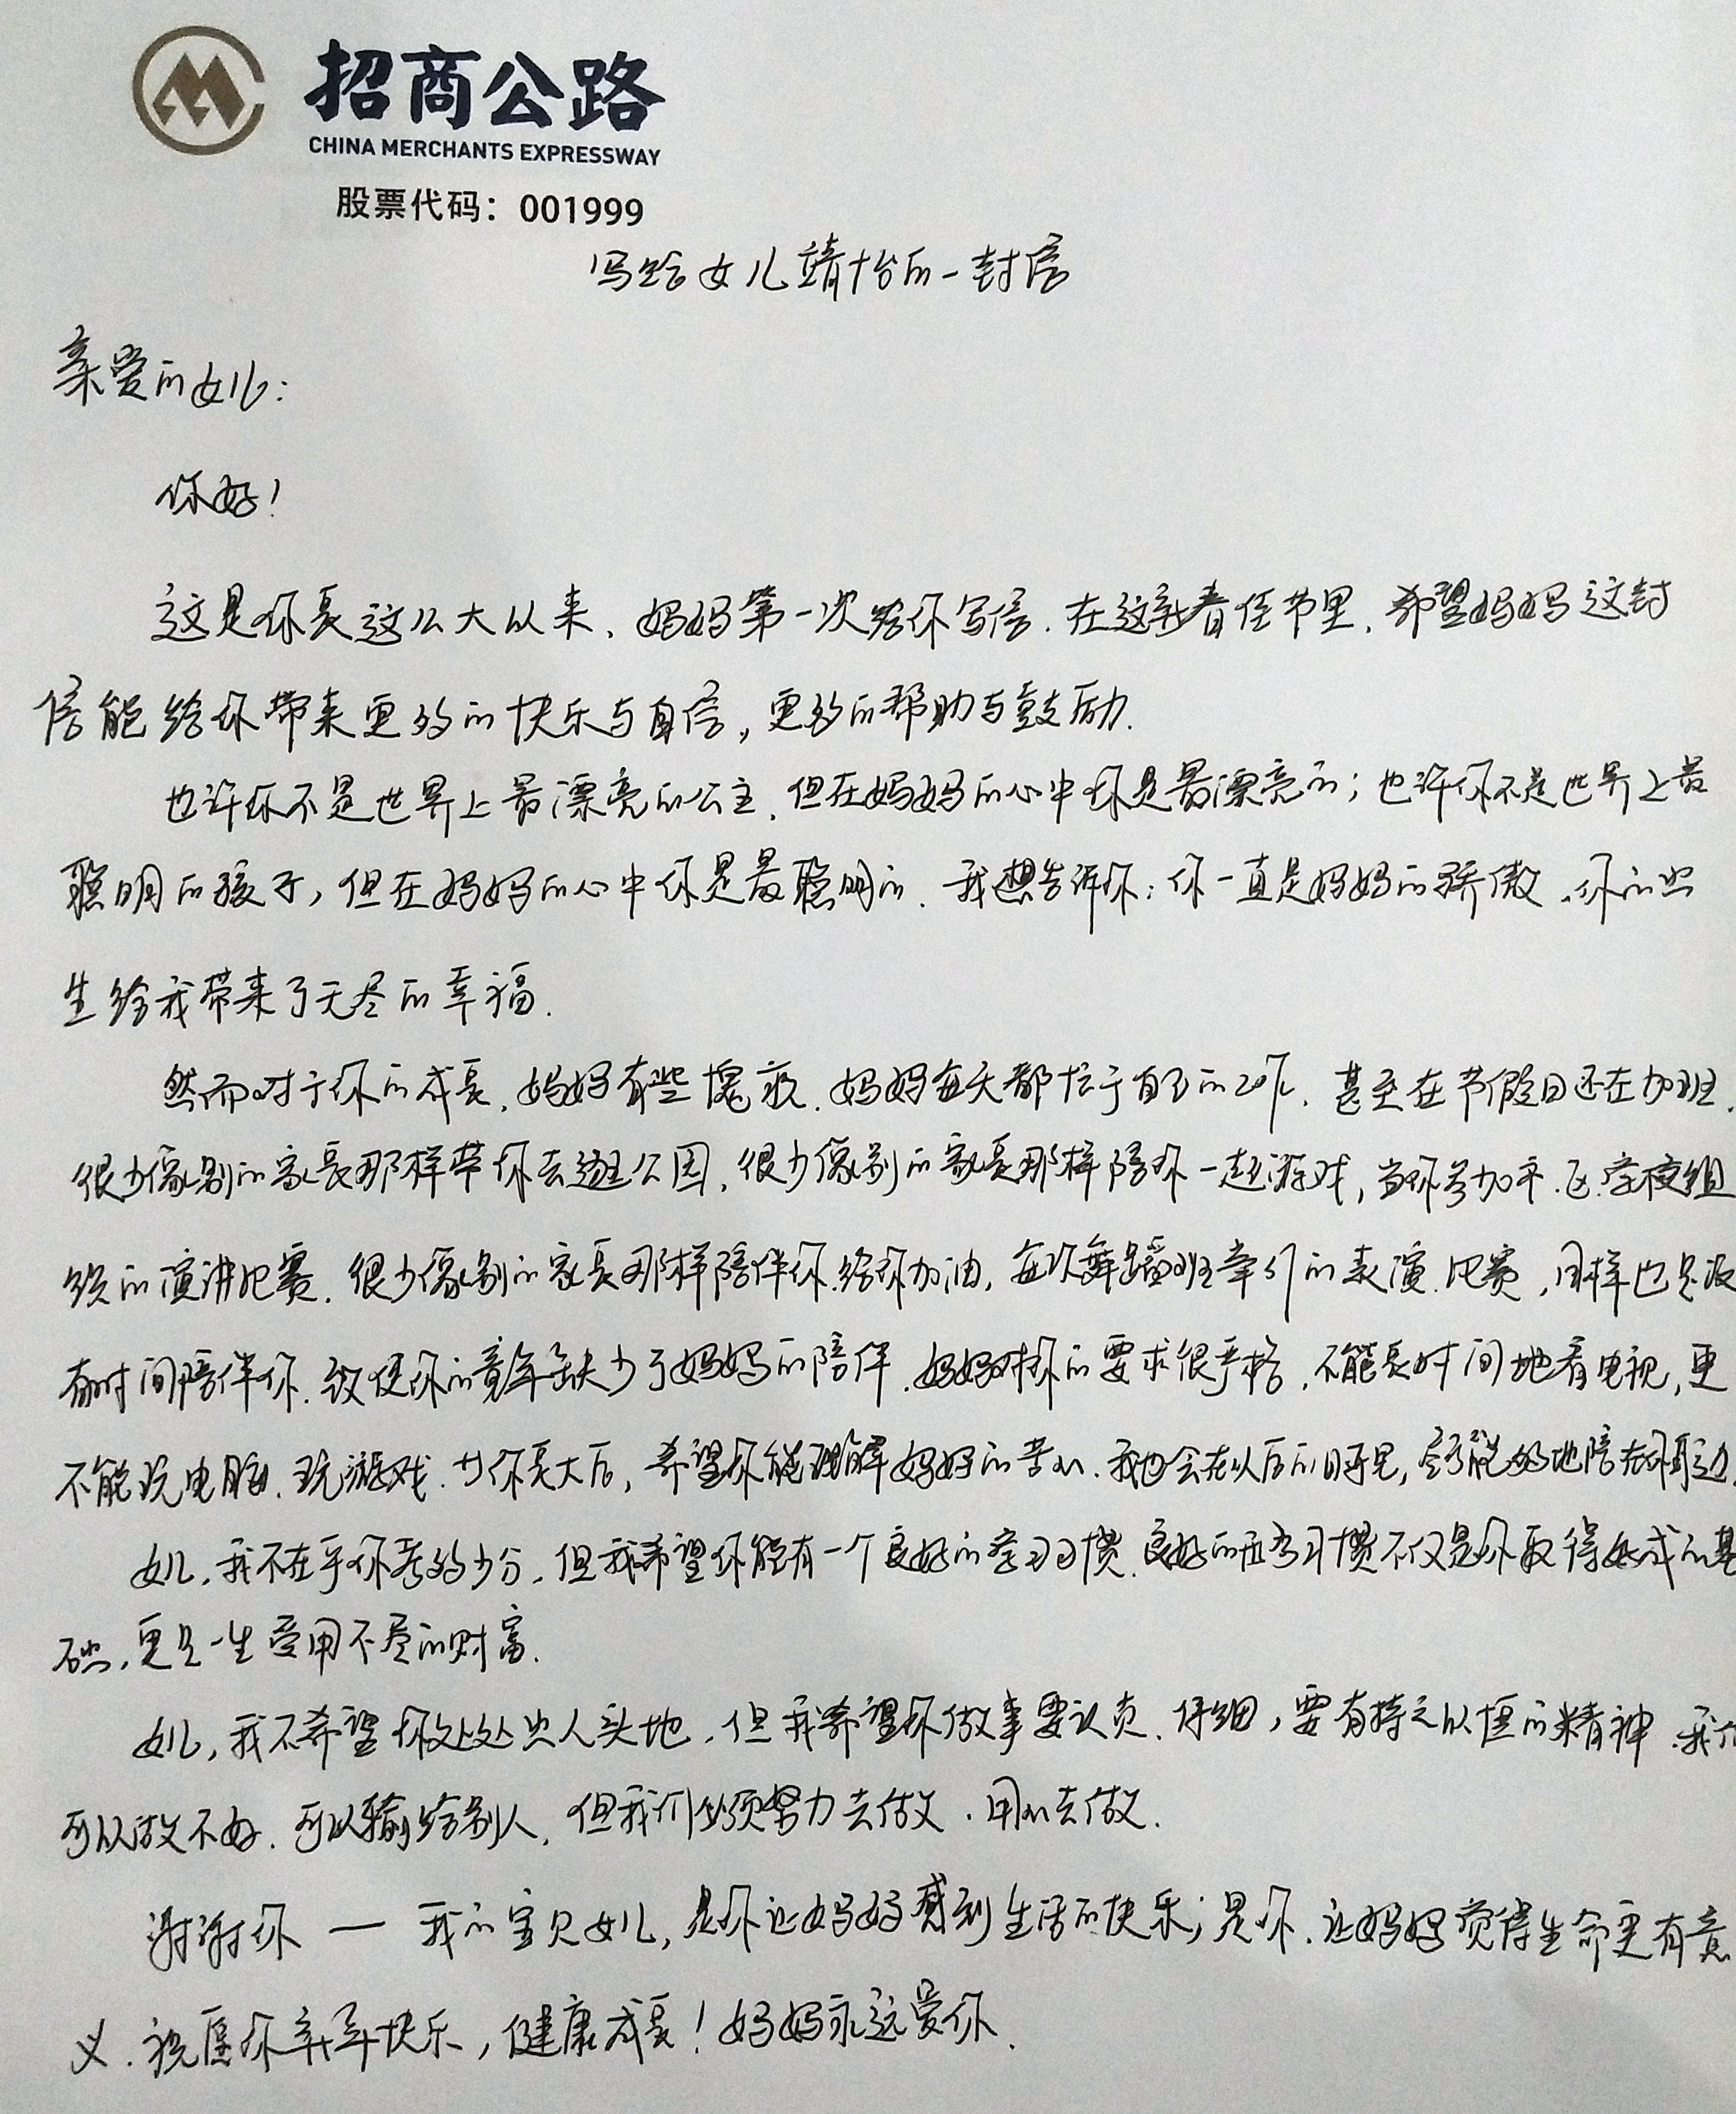 招商公路
CHINA MERCHANTS EXPRESSWAY
股票代码：001999
写给女儿靖怡的一封信
亲爱的女儿：
你好！
这是你长这么大以来，妈妈第一次给你写信．在这新春佳节里，希望妈妈这封
信能给你带来更多的快乐与自信，更多的帮助与鼓励．
也许你不是世界上最漂亮的公主，但在妈妈的心中你是最漂亮的；也许你不是世界上最
聪明的孩子，但在妈妈的心中你是最聪明的．我想告诉你：你一直是妈妈的骄傲，你的出
生给我带来了无尽的幸福．
然而对于你的成长，妈妈有些愧疚．妈妈每天都忙于自己的工作，甚至在节假日还在加班．
很少像别的家长那样带你去逛公园，很少像别的家长那样陪你一起游戏，当你参加市、区、学校组
织的演讲比赛．很少像别的家长那样陪伴你．给你加油，每次舞蹈班举行的表演、比赛，同样也是没
有时间陪伴你．致使你的童年缺少了妈妈的陪伴．妈妈对你的要求很严格，不能长时间地看电视，更
不能玩电脑、玩游戏．等你长大后，希望你能理解妈妈的苦心．我也会在以后的日子里，尽可能多地陪在你身边．
女儿，我不在乎你考多少分，但我希望你能有一个良好的学习习惯．良好的学习习惯不仅是你取得好成的基
础，更是一生受用不尽的财富．
女儿，我不希望你处处出人头地，但我希望你做事要认真、仔细，要有持之以恒的精神．我们
可以做不好、可以输给别人，但我们必须努力去做、用心去做．
谢谢你 — 我的宝贝女儿，是你让妈妈感到生活的快乐；是你，让妈妈觉得生命更有意
义．祝愿你年年快乐，健康成长！妈妈永远爱你．